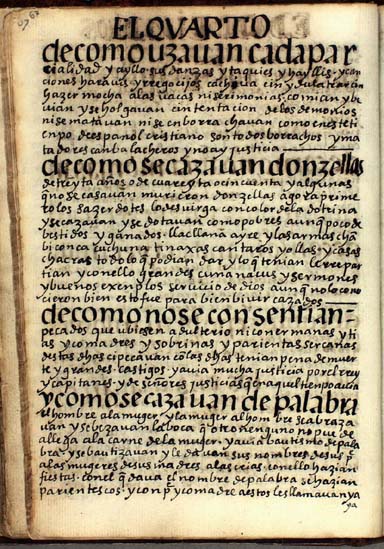 67
EL QVARTO
de como uzauan cada par
cialidad y ayllo sus danzas y taquies y hayllis y can
ciones harauis y rregocijos cachaua cin ydulatrar cin
hazer mocha a las uacas ni serimonias comian y be
uian y se holgauan cin tentacion de los demonios
ni se matauan ni se enborrachauan como en este ti
enpo de español cristiano son todos borrachos y ma
tadores canbalacheros y no ay justicia
de como se cazauan donzellas
de treynta años o de cuarenta o cincuenta y algunas
que no se casauan murieron donzellas agora prime
ro los hazen dotelos de uirga con color de la dotrina
y se cazauan y se dotauan como pobres aunque poco de
bestidos y ganados llacllana ayre y las armas cham
bi conca cuchuna tinaxas cantaros y ollas y casas
chacras todo lo que podian dar y lo que tenian le rrepar
tian y con ello grandes cunanacus y sermones
y buenos exenplos seruicio de dios aunque no lo cono
cieron bien esto fue para bien biuir cazados
de como no se consentian
pecados que ubiesen adulterio ni con ermanas y ti
as y comadres y sobrinas y parientas sercanas
destas dhas ci pecauan con las dhas tenian pena de muer
te y grandes castigos y auia mucha justicia por el rrey
y capitanes y de señores justicias que en aquel tienpo auia
y como se cazauan de palabra
el honbre a la muger y la muger al honbre se abraza
uan y se bezauan la boca que otro nenguno no puede
allega a la carne de la muger y auia bautismo de pala
bra y se bautizauan y le dauan sus nonbres de sus p
a las mugeres de sus madres a las crias con ello hazian
fiestas con el que daua el nonbre de palabra se hazian
parientescos y conpe y comadre a estos les llamauan ya
ya